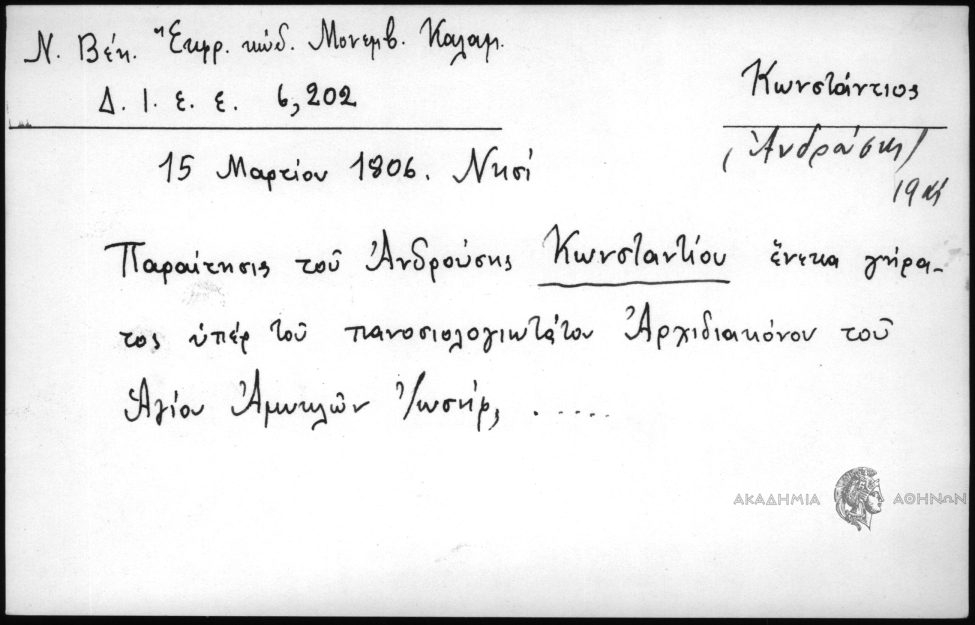 Ν. Βέη. Ἔκφρ. κώδ. Μονεμβ. Καλαμ.
Δ. Ι. ε. ε. 6,202
Κωνστάντιος
(Ἀνδρούσης)
19 
15 Μαρτίου 1806. Νησί
Παραίτησις τοῦ Ἀνδρούσης Κωνσταντίου ἕνεκα γήρα-
τος ὑπέρ τοῦ πανοσιολογιωτάτου Ἀρχιδιακόνου τοῦ
Ἁγίου Ἀμυκλῶν Ἰωσήφ, ......
ΑΚΑΔΗΜΙΑ ΑΘΗΝΩΝ